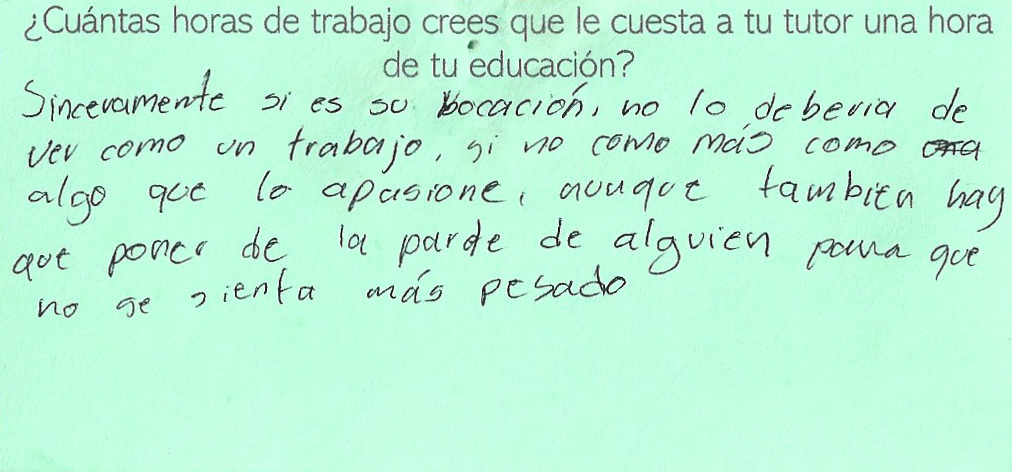 ¿Cuántas horas de trabajo crees que le cuesta a tu tutor una hora
de tu educación?
Sinceramente si es su bocación, no lo deberia de
ver como un trabajo, si no como más como
algo que lo apasione, aunque tambien hay
que poner de la parde de alguien para que
no se sienta más pesado